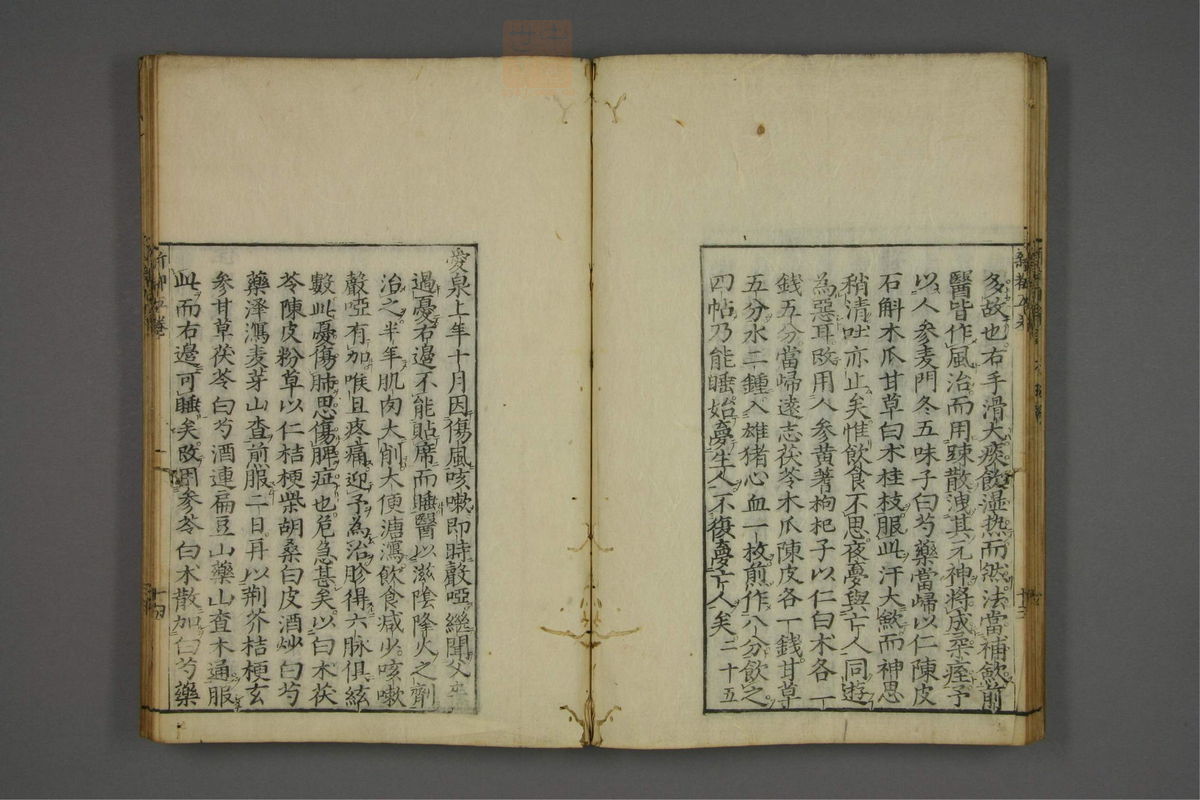 多故也右手滑大痰飲湿热而然法當補歛前
醫皆作風治而用踈散洩其元神將成柔痓予
以人参麦門冬五味子白芍藥當歸以仁陳皮
石斛木瓜甘草白木桂枝服此汗大歛而神思
稍清吐亦止矣惟飲食不思夜憂與亡人同遊
為惡耳改用人参黄蓍枸杞子以仁白木各一
錢五分當帰遠志茯苓木瓜陳皮各一錢甘草
五分水二鍾入雄猪心血一枚煎作八分飲之
四帖乃能睡始夢生人不復夢亡人矣 二十五
愛泉上年十月因傷風咳嗽即時聲啞繼聞父
過憂右邉不能貼席而睡醫以滋陰降火之劑
治之半年肌肉大削大便溏瀉飲食减少咳嗽
聲啞有加喉且疼痛迎予為治胗得六脉俱絃
數此憂傷肺思傷脾症也危急甚矣以白木茯
苓陳皮粉草以仁桔梗柴胡桑白皮酒炒白芍
藥泽瀉麦芽山查煎服二日再以荆芥桔梗玄
参甘草茯苓白芍酒連扁豆山藥山查木通服
此而右邉可睡矣改用参苓白术散加白芍藥
十四